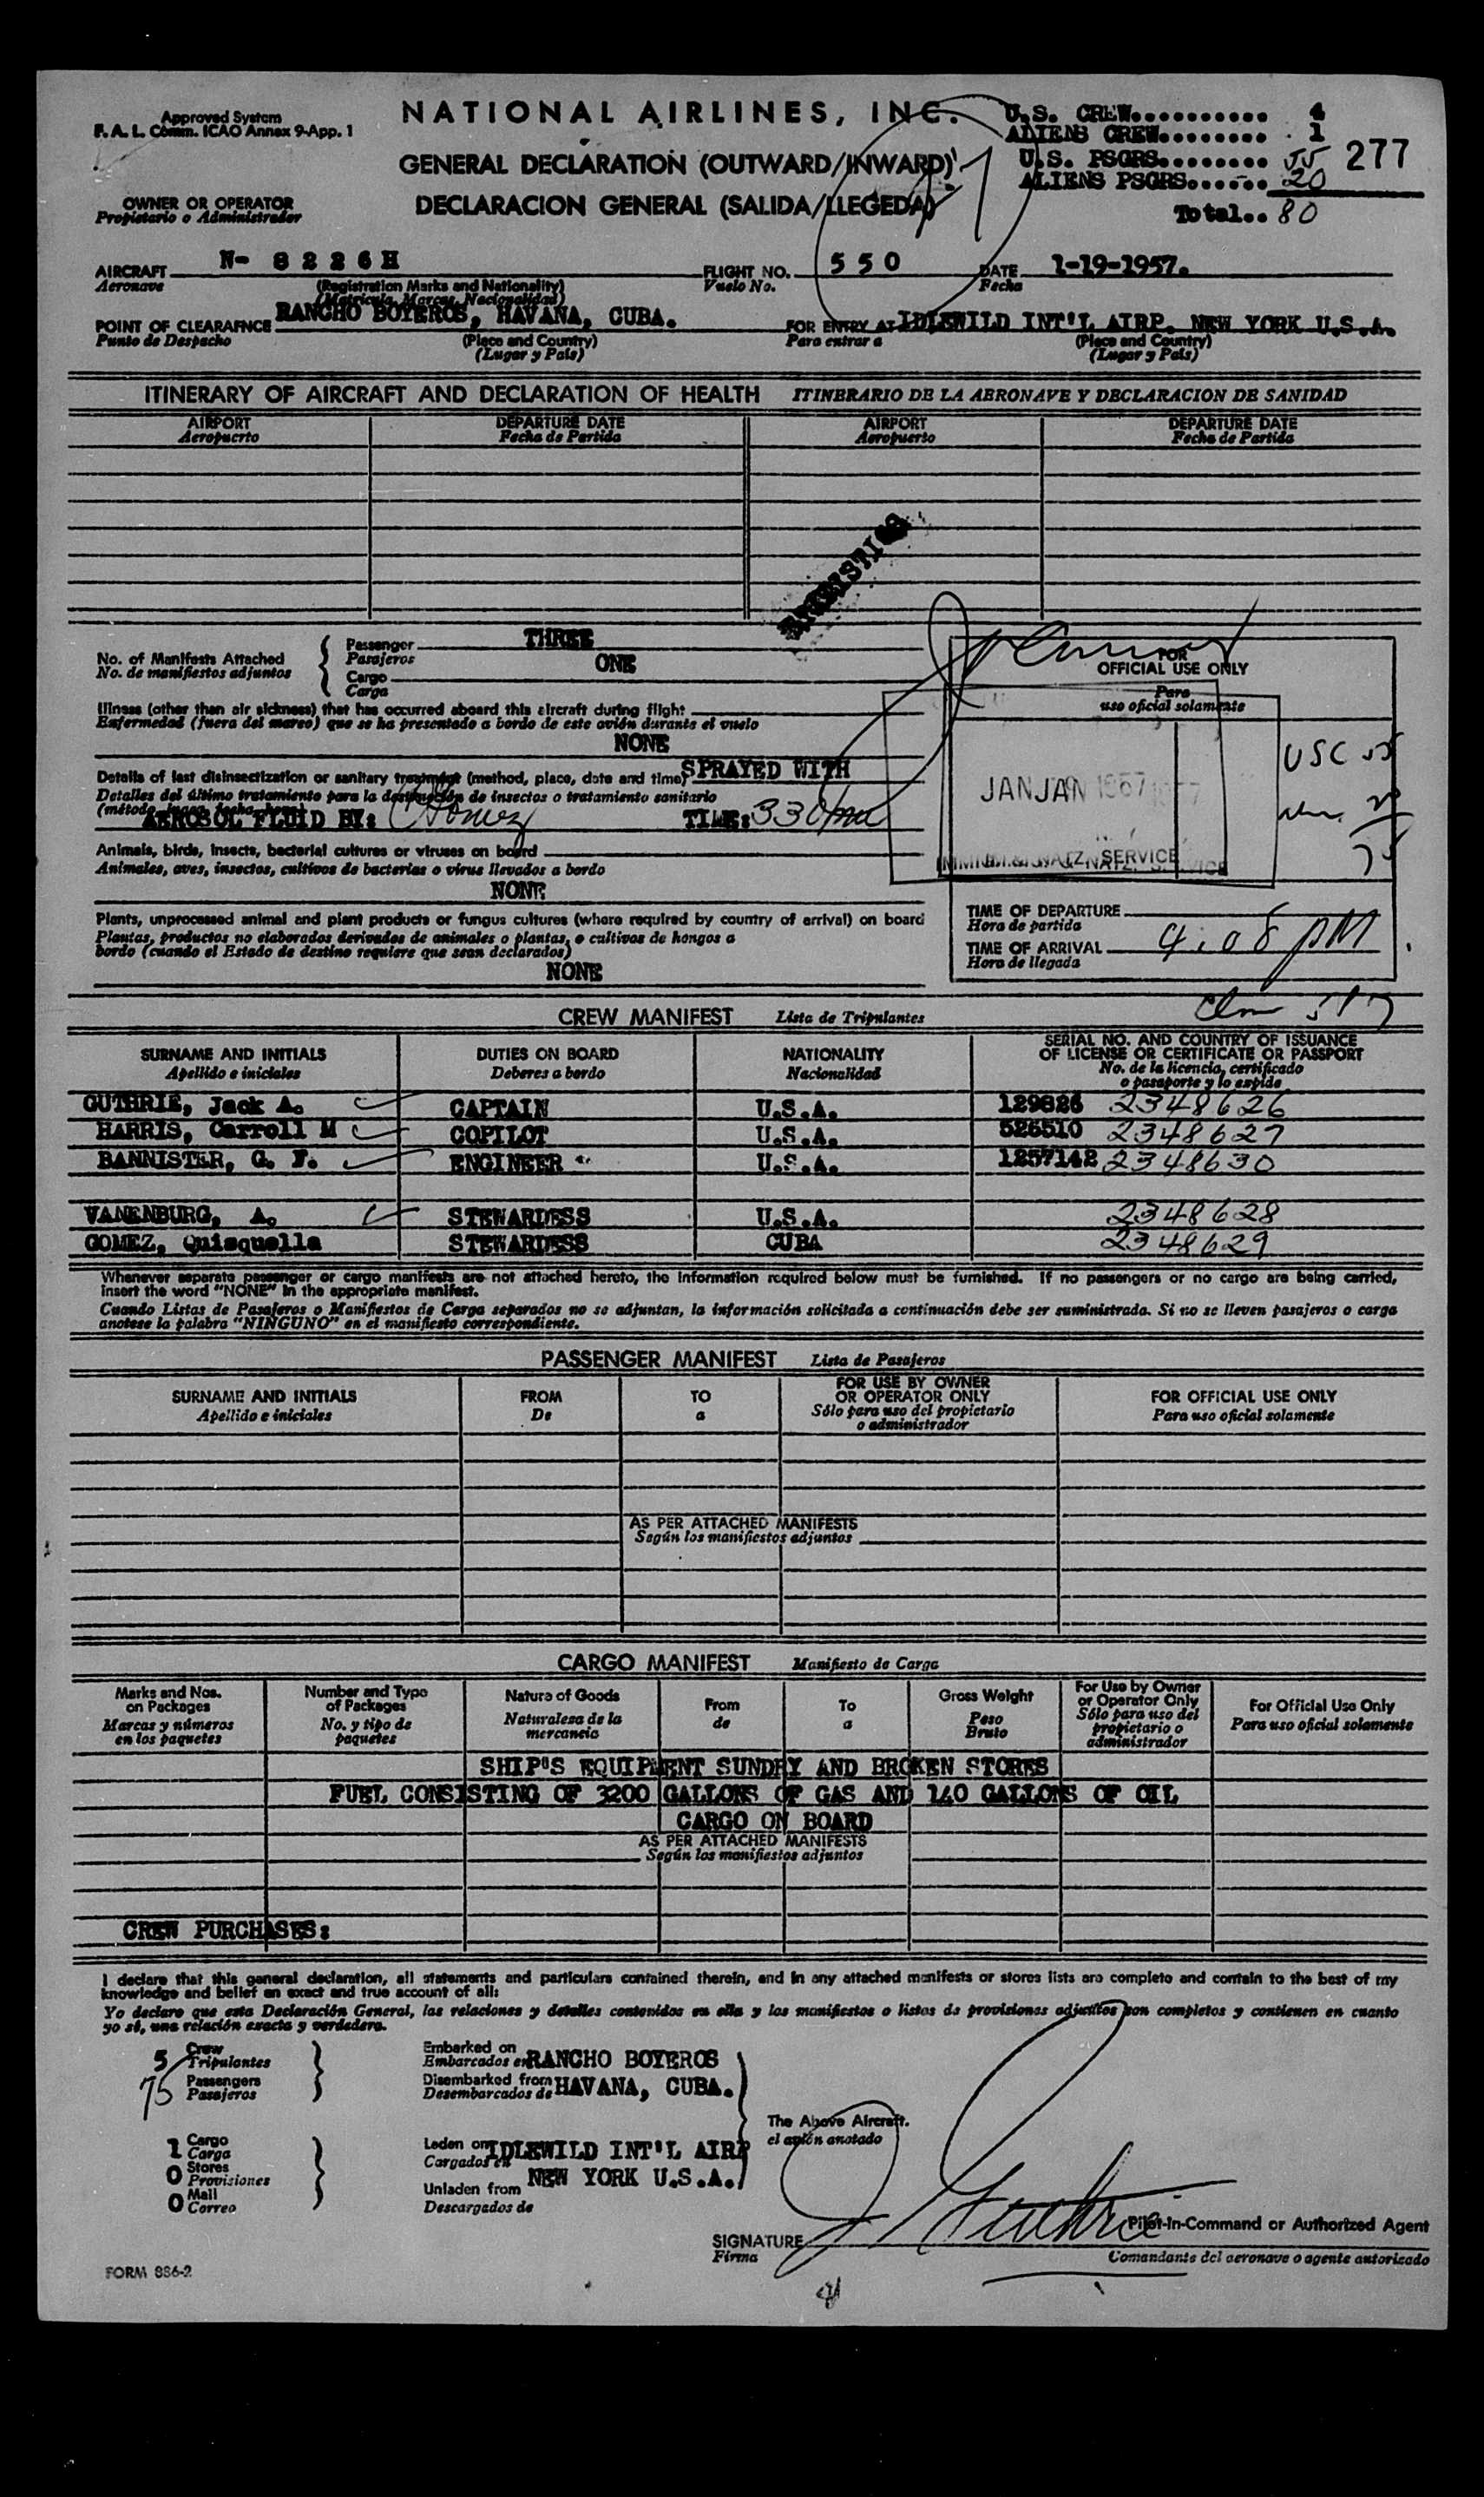 Approved System
F. A. L. Comm. ICAO Annex 9-App. 1
NATIONAL AIRLINES, INC.
GENERAL DECLARATION (OUTWARD/INWARD)
DECLARACION GENERAL (SALIDA/LLEGEDA)
OWNER OR OPERATOR
Propietario o Administrador
U.S. CREW.......... 4
ALIENS CREW........ 1
U.S. PSGRS........ 55
277
ALIENS PSGRS...... 20
Total.. 80
AIRCRAFT N- 8226H FLIGHT NO. 550 DATE 1-19-1957.
Aeronave (Registration Marks and Nationality) Vuelo No. Fecha
(Matricula, Marcas, Nacionalidad)
POINT OF CLEARAFNCE RANCHO BOYEROS, HAVANA, CUBA. FOR ENTRY AT IDLEWILD INT'L AIRP. NEW YORK U.S.A.
Punto de Despacho (Place and Country) Para entrar a (Place and Country)
(Lugar y País) (Lugar y País)
ITINERARY OF AIRCRAFT AND DECLARATION OF HEALTH ITINERARIO DE LA AERONAVE Y DECLARACION DE SANIDAD
AIRPORT DEPARTURE DATE AIRPORT DEPARTURE DATE
Aeropuerto Fecha de Partida Aeropuerto Fecha de Partida
No. of Manifests Attached
No. de manifiestos adjuntos
Passenger THREE
Pasajeros
ONE
Cargo
Carga
Illness (other than air sickness) that has occurred aboard this aircraft during flight
Enfermedad (fuera del mareo) que se ha presentado a bordo de este avión durante el vuelo
NONE
Details of last disinsectization or sanitary treatment (method, place, date and time) SPRAYED WITH
Detalles del último tratamiento para la destrucción de insectos o tratamiento sanitario
(método, lugar, fecha, hora)
AEROSOL FLUID BY: Gomez TIME: 330
Animals, birds, insects, bacterial cultures or viruses on board
Animales, aves, insectos, cultivos de bacterias o virus llevados a bordo
NONE
Plants, unprocessed animal and plant products or fungus cultures (where required by country of arrival) on board
Plantas, productos no elaborados derivados de animales o plantas, o cultivos de hongos a
bordo (cuando el Estado de destino requiere que sean declarados)
NONE
FOR
OFFICIAL USE ONLY
Para
uso oficial solamente
JAN JAN 1957
IMMIG. & NATZ. SERVICE
USC 55
75
TIME OF DEPARTURE
Hora de partida
TIME OF ARRIVAL 4.08 PM
Hora de llegada
CREW MANIFEST Lista de Tripulantes
SURNAME AND INITIALS DUTIES ON BOARD NATIONALITY SERIAL NO. AND COUNTRY OF ISSUANCE
OF LICENSE OR CERTIFICATE OR PASSPORT
Apellido e iniciales Deberes a bordo Nacionalidad No. de la licencia, certificado
o pasaporte y lo expide
GUTHRIE, Jack A. CAPTAIN U.S.A. 129826 2348626
HARRIS, Carroll M COPILOT U.S.A. 526510 2348627
BANNISTER, G. F. ENGINEER U.S.A. 1257142 2348630
VANENBURG, A. STEWARDESS U.S.A. 2348628
GOMEZ, Quisquella STEWARDESS CUBA 2348629
Whenever separate passenger or cargo manifests are not attached hereto, the information required below must be furnished. If no passengers or no cargo are being carried,
insert the word "NONE" in the appropriate manifest.
Cuando Listas de Pasajeros o Manifiestos de Carga separados no se adjuntan, la información solicitada a continuación debe ser suministrada. Si no se lleven pasajeros o carga
anotese la palabra "NINGUNO" en el manifiesto correspondiente.
PASSENGER MANIFEST Lista de Pasajeros
SURNAME AND INITIALS FROM TO FOR USE BY OWNER
OR OPERATOR ONLY FOR OFFICIAL USE ONLY
Apellido e iniciales De a Sólo para uso del propietario
o administrador Para uso oficial solamente
AS PER ATTACHED MANIFESTS
Según los manifiestos adjuntos
CARGO MANIFEST Manifiesto de Carga
Marks and Nos.
on Packages
Marcas y números
en los paquetes
Number and Type
of Packages
No. y tipo de
paquetes
Nature of Goods
Naturaleza de la
mercancia
From
de
To
a
Gross Weight
Peso
Bruto
For Use by Owner
or Operator Only
Sólo para uso del
propietario o
administrador
For Official Use Only
Para uso oficial solamente
SHIP'S EQUIPMENT SUNDRY AND BROKEN STORES
FUEL CONSISTING OF 3200 GALLONS OF GAS AND 140 GALLONS OF OIL
CARGO ON BOARD
AS PER ATTACHED MANIFESTS
Según los manifiestos adjuntos
CREW PURCHASES:
I declare that this general declaration, all statements and particulars contained therein, and in any attached manifests or stores lists are complete and contain to the best of my
knowledge and belief an exact and true account of all:
Yo declaro que esta Declaración General, las relaciones y detalles contenidos en ella y los manifiestos o listas de provisiones adjuntos son completos y contienen en cuanto
yo sé, una relación exacta y verdadera.
5 Crew
Tripulantes
75 Passengers
Pasajeros
Embarked on
Embarcados en RANCHO BOYEROS
Disembarked from
Desembarcados de HAVANA, CUBA.
The Above Aircraft.
el avión anotado
1 Cargo
Carga
0 Stores
Provisiones
0 Mail
Correo
Laden on
Cargados en IDLEWILD INT'L AIRP
NEW YORK U.S.A.
Unladen from
Descargados de
SIGNATURE J Guthrie Pilot-in-Command or Authorized Agent
Firma Comandante del aeronave o agente autorizado
FORM 886-2